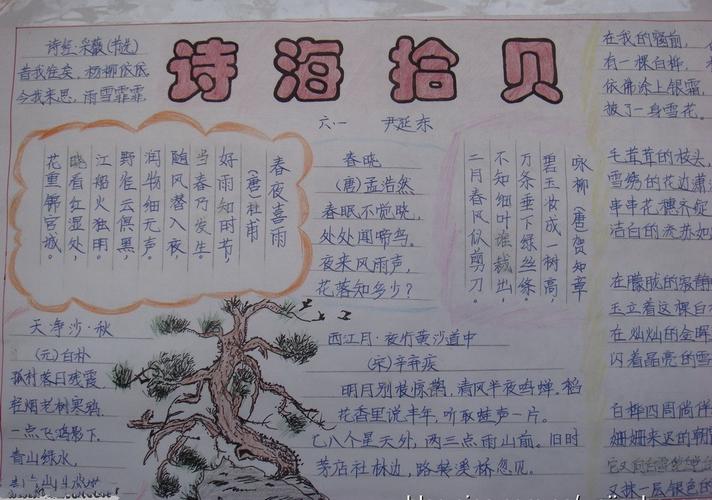 诗海拾贝
六·一 尹延东
诗经·采薇(节选)
昔我往矣，杨柳依依
今我来思，雨雪霏霏
春夜喜雨
(唐)杜甫
好雨知时节，
当春乃发生。
随风潜入夜，
润物细无声。
野径云俱黑，
江船火独明。
晓看红湿处，
花重锦官城。
春晓
(唐)孟浩然
春眠不觉晓，
处处闻啼鸟。
夜来风雨声，
花落知多少？
咏柳(唐)贺知章
碧玉妆成一树高，
万条垂下绿丝绦。
不知细叶谁裁出，
二月春风似剪刀。
天净沙·秋
(元)白朴
孤村落日残霞，
轻烟老树寒鸦，
一点飞鸿影下。
青山绿水，
西江月·夜行黄沙道中
(宋)辛弃疾
明月别枝惊鹊，清风半夜鸣蝉。稻
花香里说丰年，听取蛙声一片。
七八个星天外，两三点雨山前。旧时
茅店社林边，路转溪桥忽见。
在我的窗前，
有一棵白桦，
依佛涂上银霜，
披了一身雪花。
毛茸茸的枝头，
雪绣的花边潇
串串花穗齐绽
洁白的流苏如
在朦胧的寂静
玉立着这棵白
在灿灿的金晖
闪着晶亮的雪
白桦四周徜徉
姗姗来迟的朝
又抹一层银色的